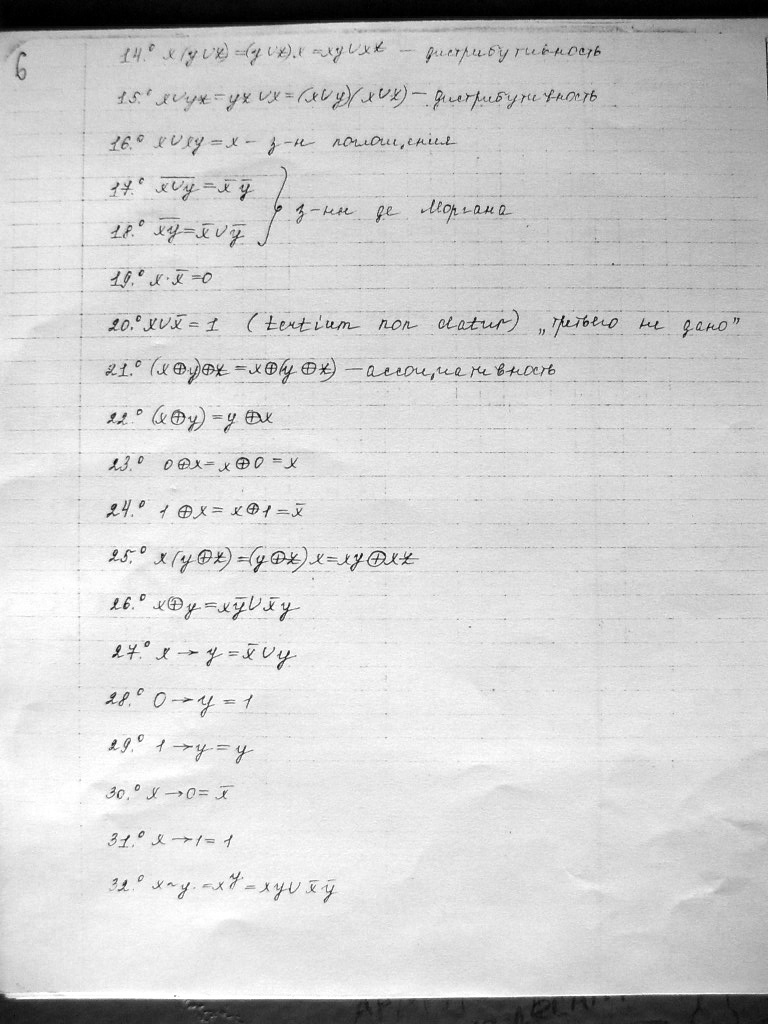 6
14.° x(y∪z)=(y∪z)x=xy∪xz – дистрибутивность
15.° x∪yz=yz∪x=(x∪y)(x∪z) – дистрибутивность
16.° x∪xy=x – з-н поглощения
17.° x̅∪̅y̅=x̅ y̅
18.° x̅y̅=x̅∪y̅ } з-ны де Моргана
19.° x·x̅=0
20.° x∪x̅=1 (tertium non datur) „третьего не дано”
21.° (x⊕y)⊕z=x⊕(y⊕z) – ассоциативность
22.° (x⊕y)=y⊕x
23.° 0⊕x=x⊕0=x
24.° 1⊕x=x⊕1=x̅
25.° x(y⊕z)=(y⊕z)x=xy⊕xz
26.° x⊕y=xy̅∪x̅y
27.° x→y=x̅∪y
28.° 0→y=1
29.° 1→y=y
30.° x→0=x̅
31.° x→1=1
32.° x~y=xʸ=xy∪x̅y̅